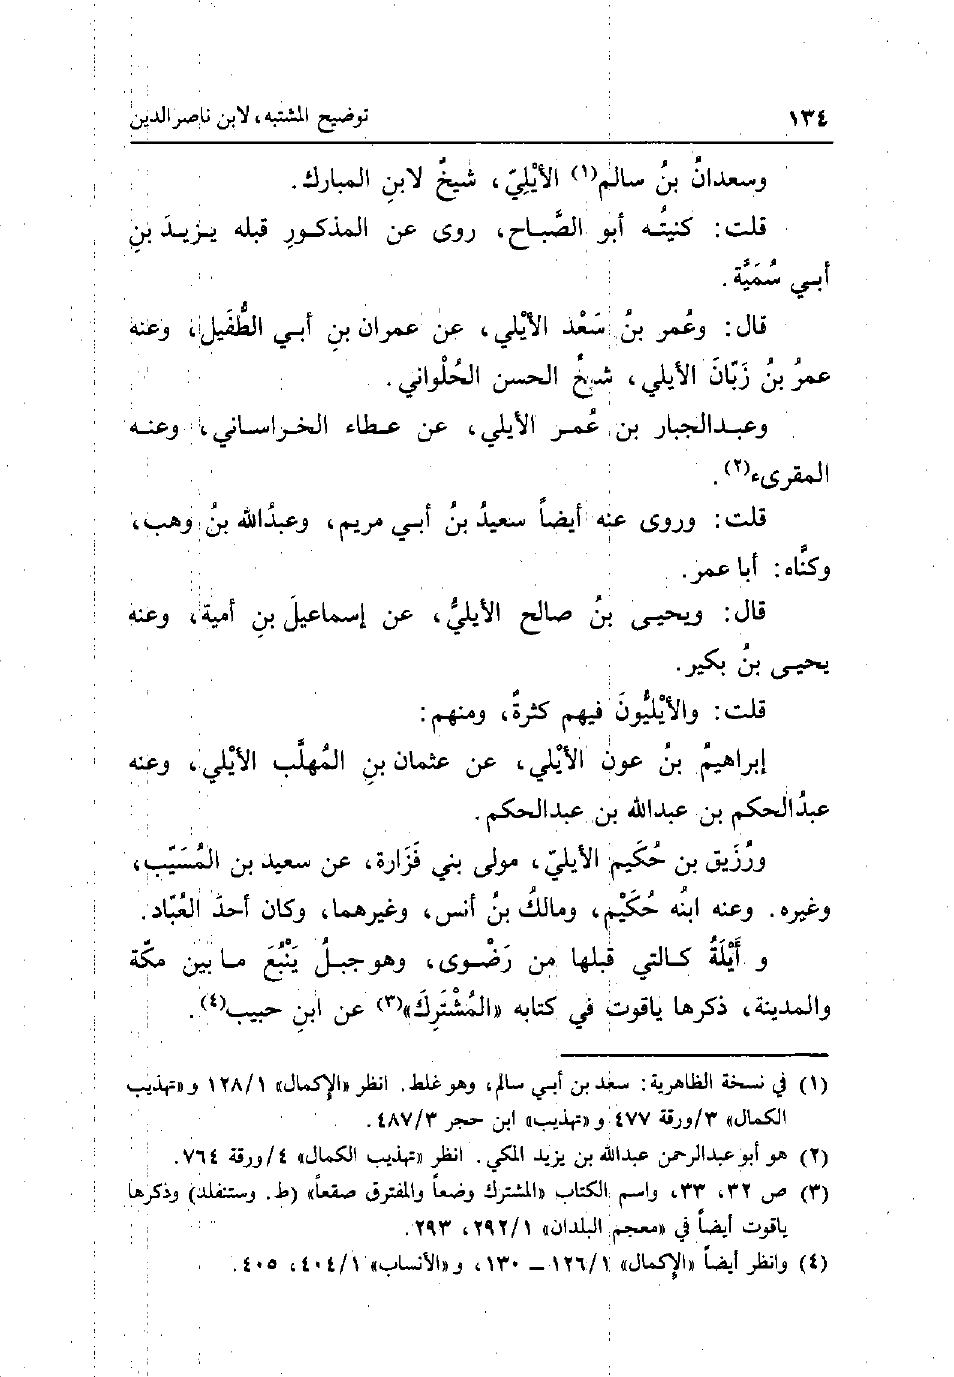 ١٣٤ توضيح المشتبه، لابن ناصر الدين
وسعدانُ بنُ سالم(١) الأَيْلِيّ، شيخٌ لابنِ المبارك.
قلت: كنيتُـه أبو الصَّبـاح، روى عن المذكـورِ قبله يـزيـدَ بنِ
أبـي سُمَيَّة.
قال: وعُمر بنُ سَعْد الأَيْلي، عن عمران بنِ أبـي الطُّفَيل، وعنه
عمرُ بنُ زَبّانَ الأيلي، شيخُ الحسن الحُلْواني.
وعبـدالجبار بن عُمـر الأيلي، عن عـطاء الخـراسـاني، وعنـه
المقرىء(٢).
قلت: وروى عنه أيضاً سعيدُ بنُ أبـي مريم، وعبدُالله بنُ وهب،
وكنَّاه: أبا عمر.
قال: ويحيـى بنُ صالح الأيليُّ، عن إسماعيلَ بنِ أمية، وعنه
يحيـى بنُ بكير.
قلت: والأَيْليُّونَ فيهم كثرةٌ، ومنهم:
إبراهيمُ بنُ عون الأَيْلي، عن عثمان بنِ المُهلَّب الأَيْلي، وعنه
عبدُالحكم بن عبدالله بن عبدالحكم.
ورُزَيق بن حُكَيم الأيليّ، مولى بني فَزَارة، عن سعيد بن المُسَيّب،
وغيره. وعنه ابنُه حُكَيْم، ومالكُ بنُ أنس، وغيرهما، وكان أحدَ العُبّاد.
و أَيْلَةُ كـالتي قبلها من رَضْـوى، وهو جبـلُ يَنْبُعَ مـا بين مكّة
والمدينة، ذكرها ياقوت في كتابه «المُشْتَرِكَ»(٣) عن ابنِ حبيب(٤).
(١) في نسخة الظاهرية: سعد بن أبـي سالم، وهو غلط. انظر «الإكمال» ١٢٨/١ و«تهذيب
الكمال» ٣/ورقة ٤٧٧ و«تهذيب» ابن حجر ٤٨٧/٣.
(٢) هو أبو عبدالرحمن عبدالله بن يزيد المكي. انظر «تهذيب الكمال» ٤/ورقة ٧٦٤.
(٣) ص ٣٢، ٣٣، واسم الكتاب «المشترك وضعاً والمفترق صقعاً» (ط. وستنفلد) وذكرها
ياقوت أيضاً في «معجم البلدان» ٢٩٢/١، ٢٩٣.
(٤) وانظر أيضاً «الإكمال» ١٢٦/١ ــ ١٣٠، و«الأنساب» ٤٠٤/١، ٤٠٥.